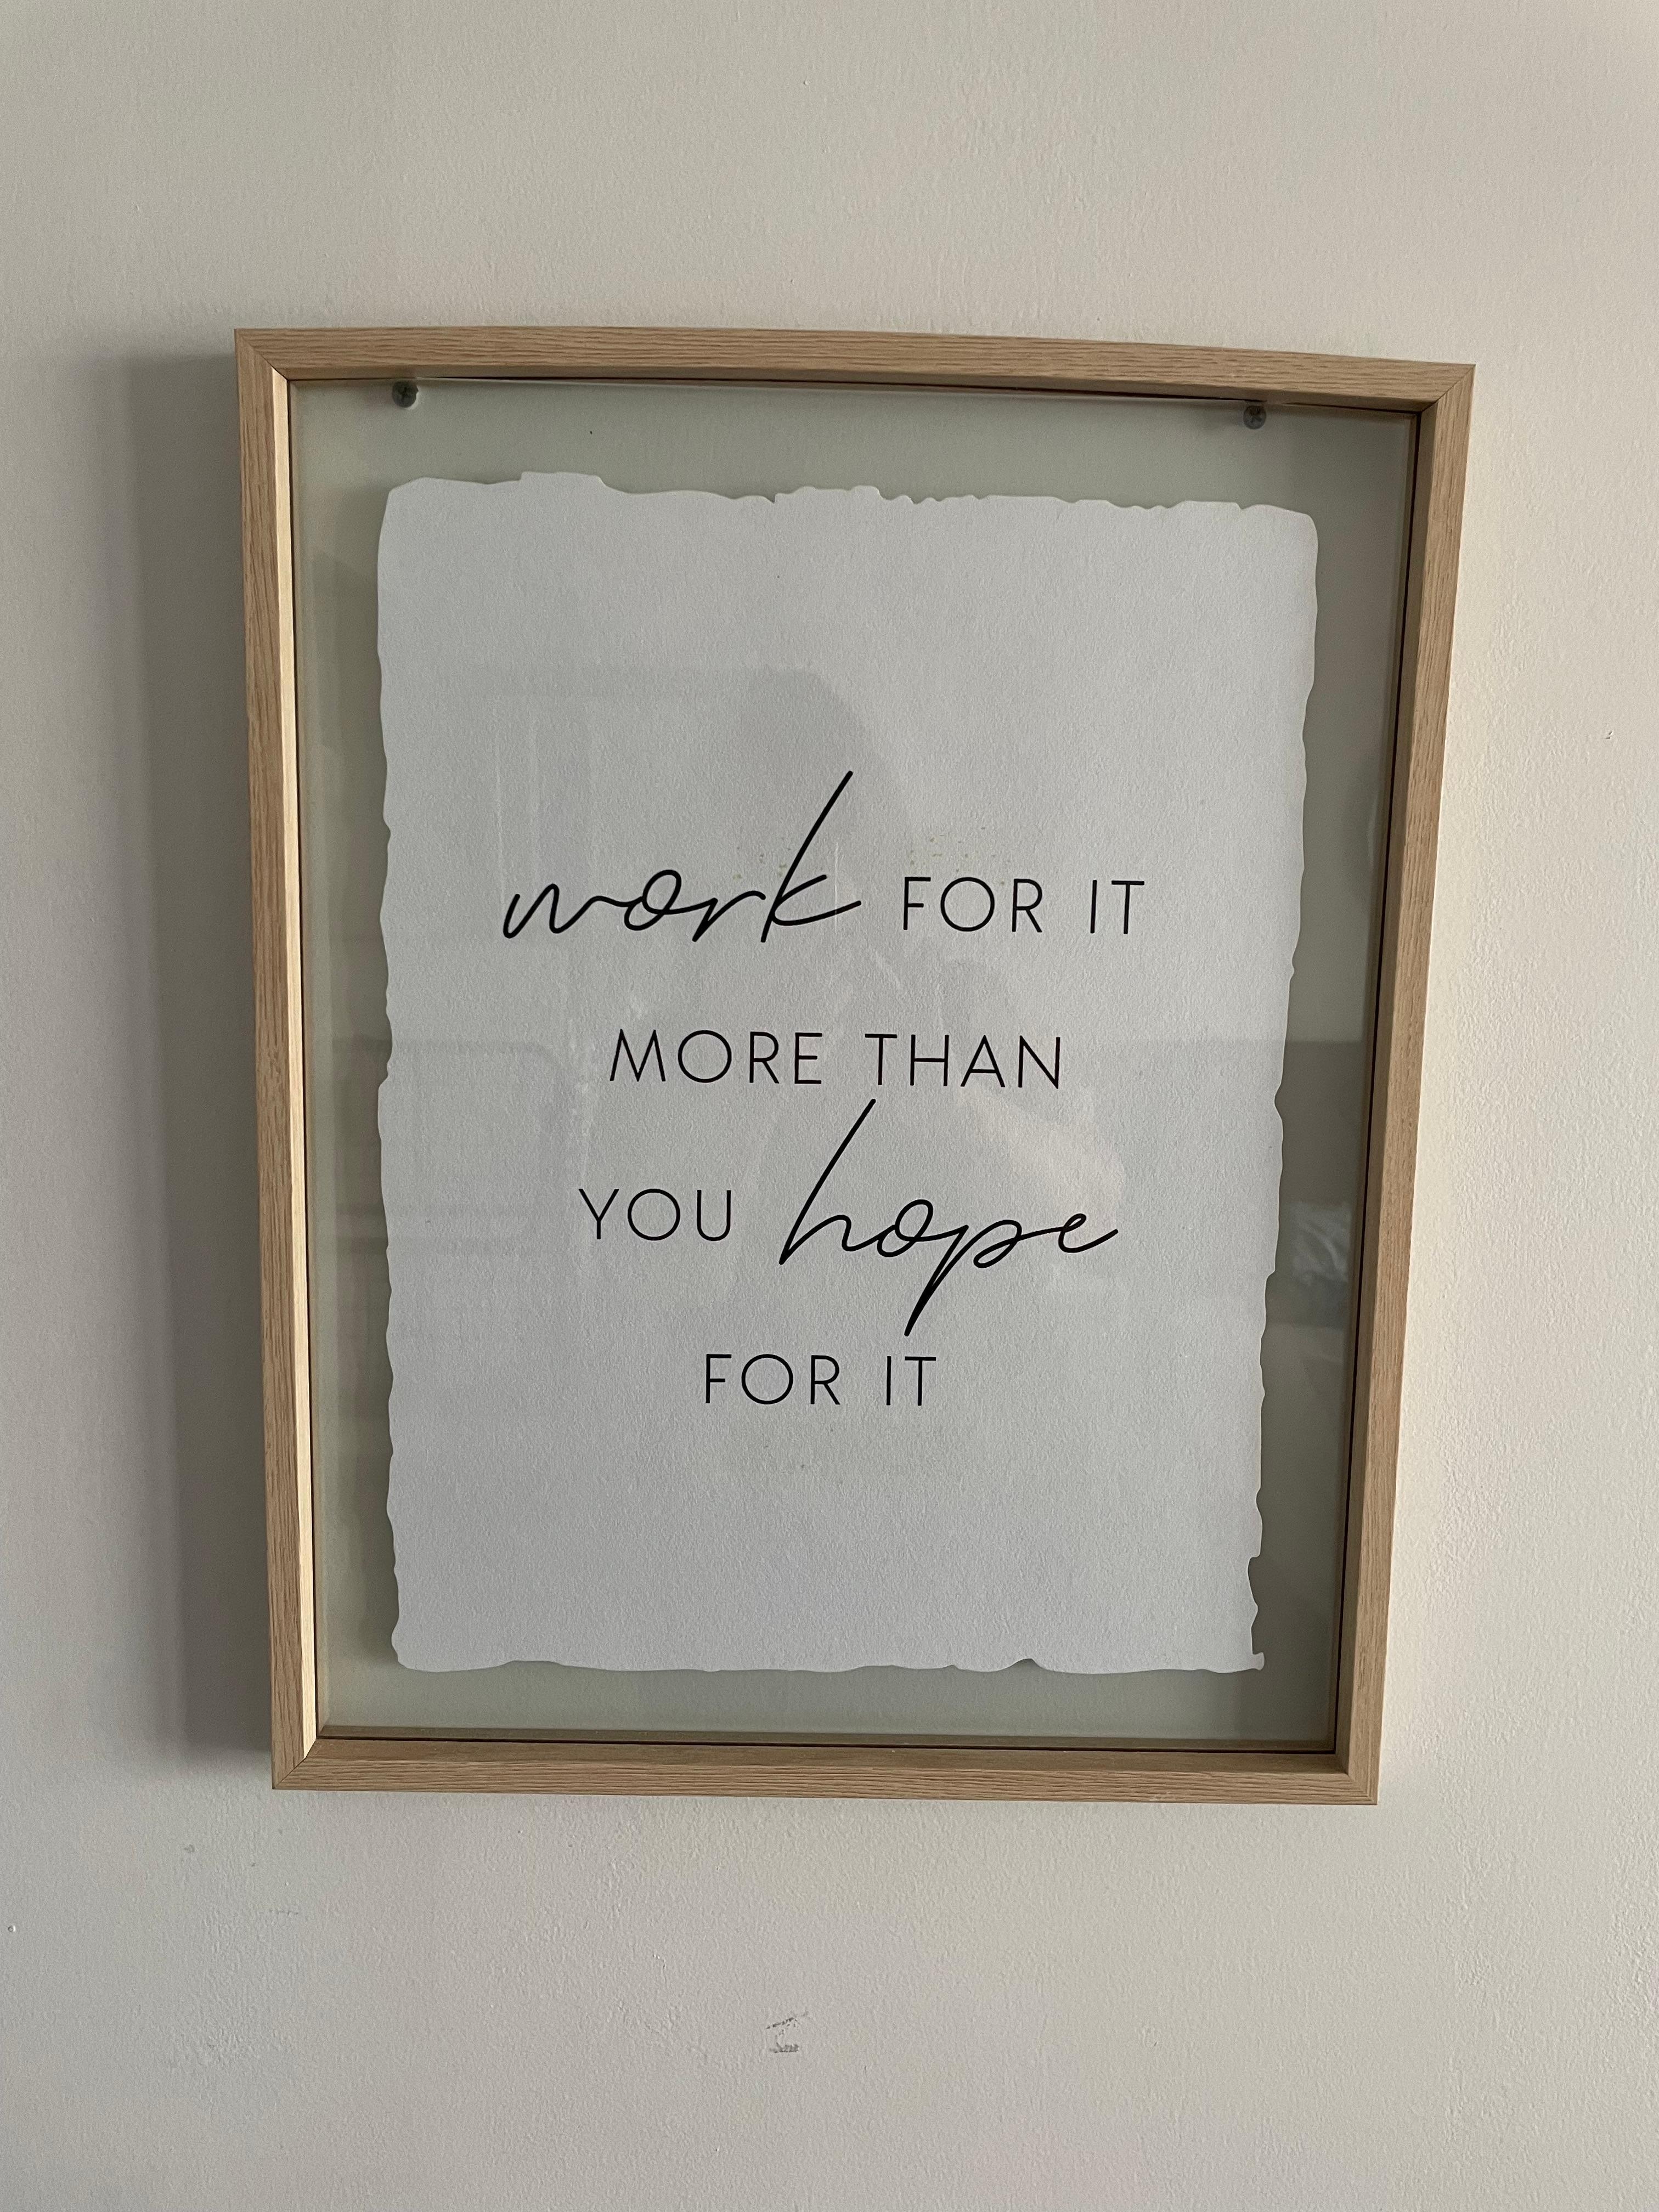 work FOR IT
MORE THAN
YOU hope
FOR IT